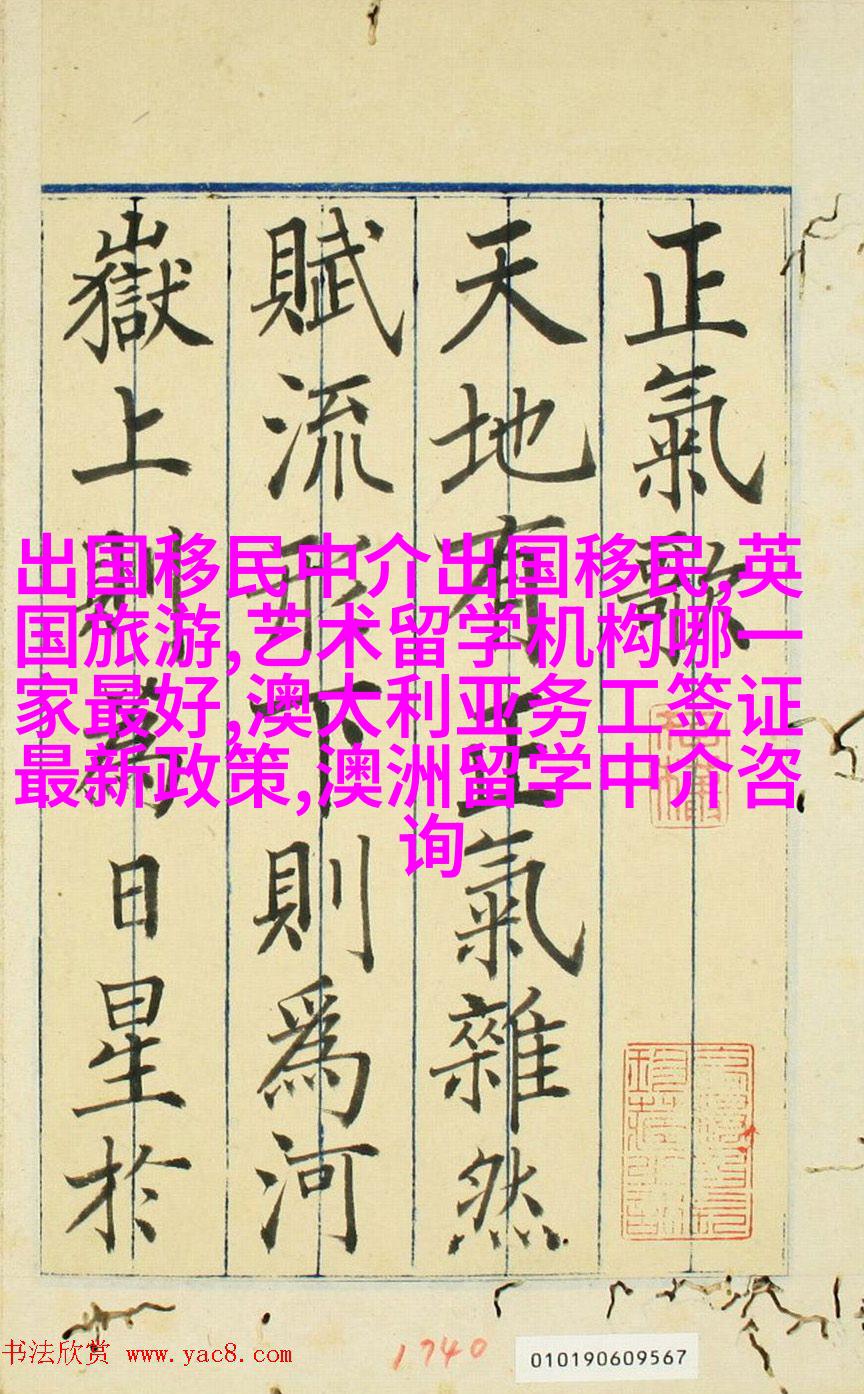 正氣歌
天地有正氣雜然
賦流形下則為河
嶽上則為日星於
出国移民中介出国移民,英
国旅游,艺术留学机构哪一
家最好,澳大利亚务工签证
最新政策,澳洲留学中介咨
询
书法欣赏 www.yac8.com
1740
010190609567